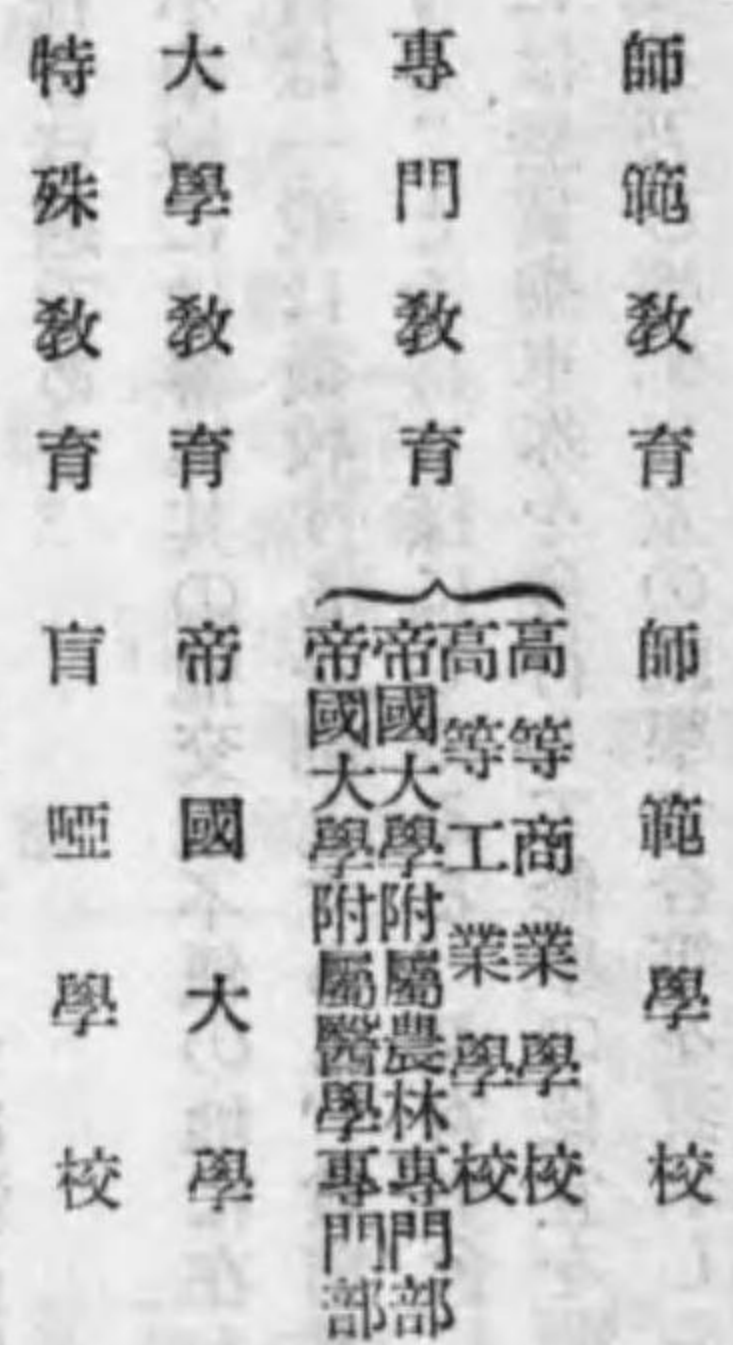 師範教育 師範學校
專門教育
高等商業學校
高等工業學校
帝國大學附屬農林專門部
帝國大學附屬醫學專門部
大學教育 帝國大學
特殊教育 盲啞學校